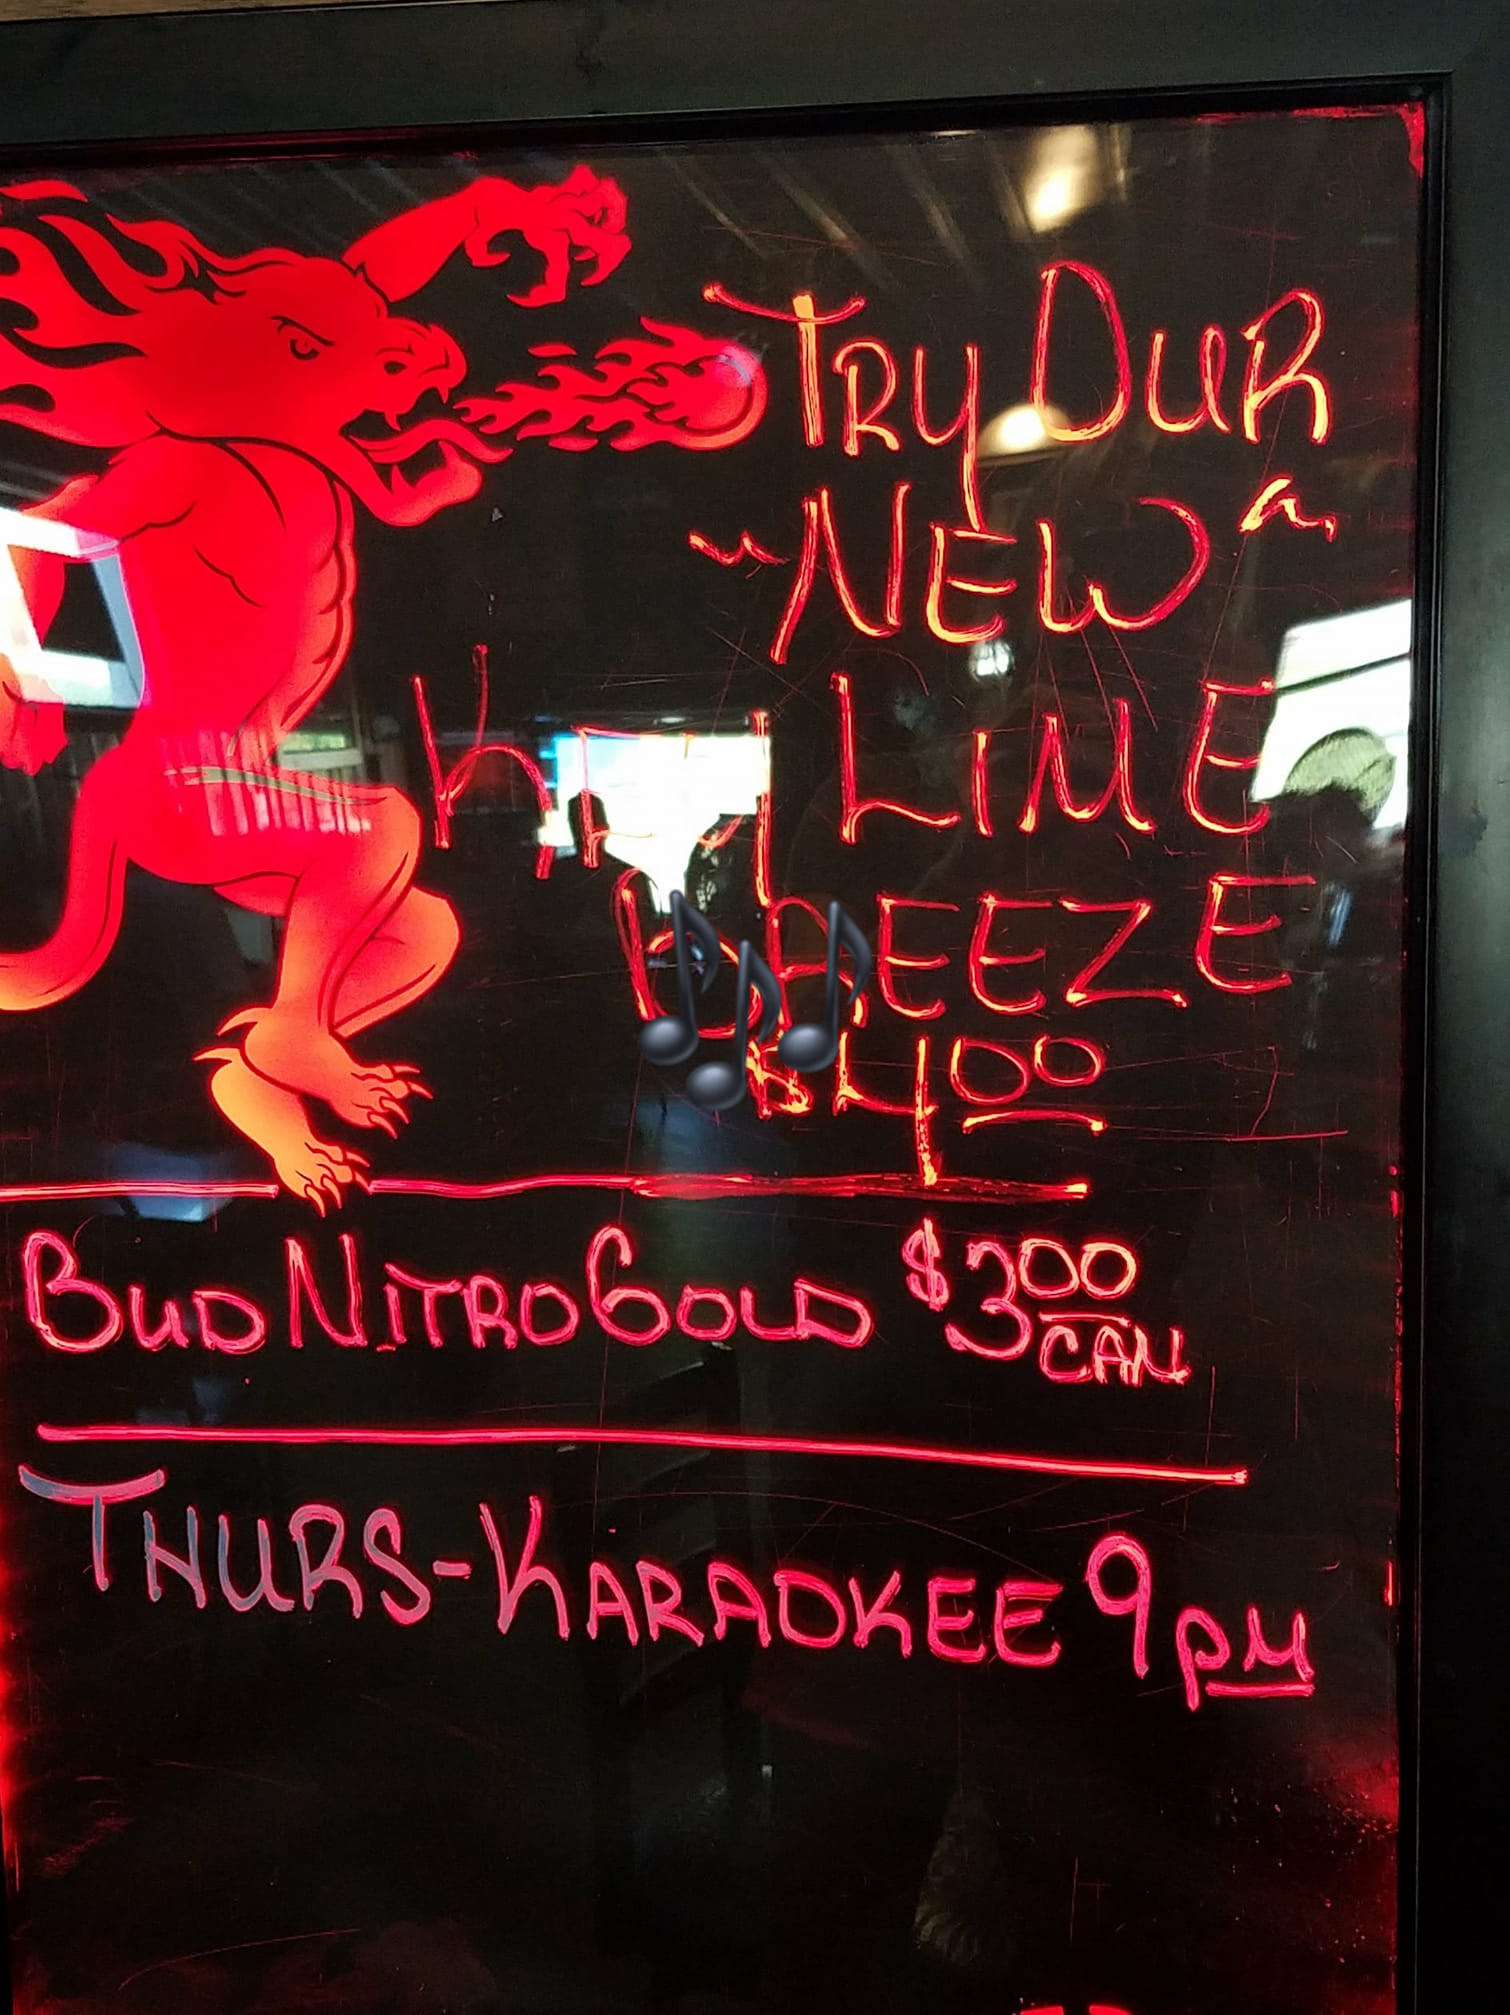 TRY OUR
"NEW"
KEY LIME
BREEZE
$4.00
BUD NITRO GOLD $3.00
CAN
THURS-KARAOKEE 9pM